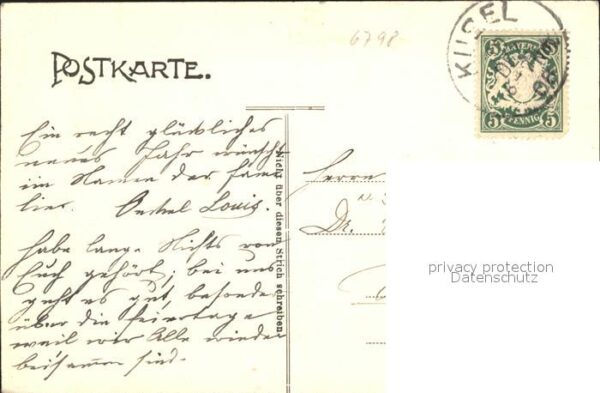 6798
KUSEL
BAYERN
5 5
5 PFENNIG 5
POSTKARTE.
Ein recht glückliches
neues Jahr wünscht
im Namen der Fami-
lie. Onkel Louis.
habe lange Nichts von
Euch gehört; bei uns
geht es gut, besonders
über die Feiertage
weil wir Alle wieder
beisammen sind.
Nicht über diesen Strich schreiben
Herrn
Dr.
privacy protection
Datenschutz